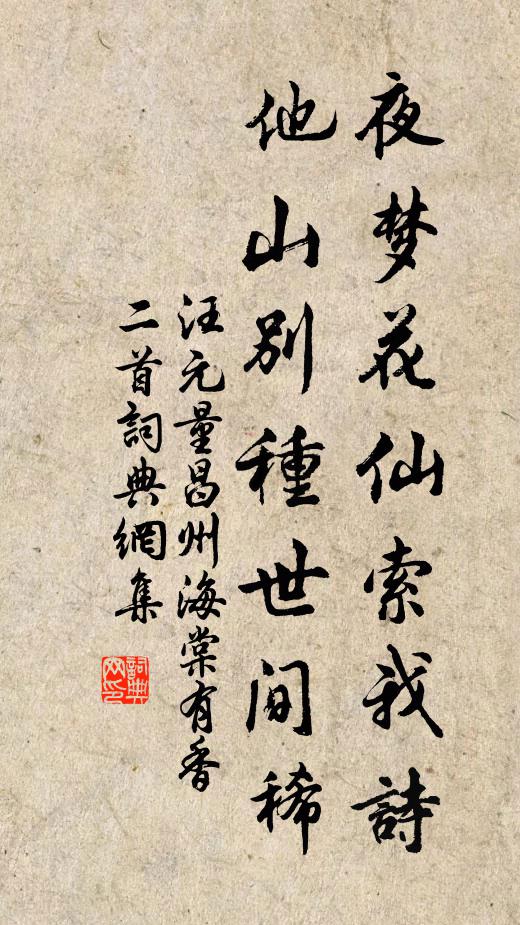 夜梦花仙索我詩
他山别種世间稀
汪元量昌州海棠有香
二首詞典網集
詞典网印